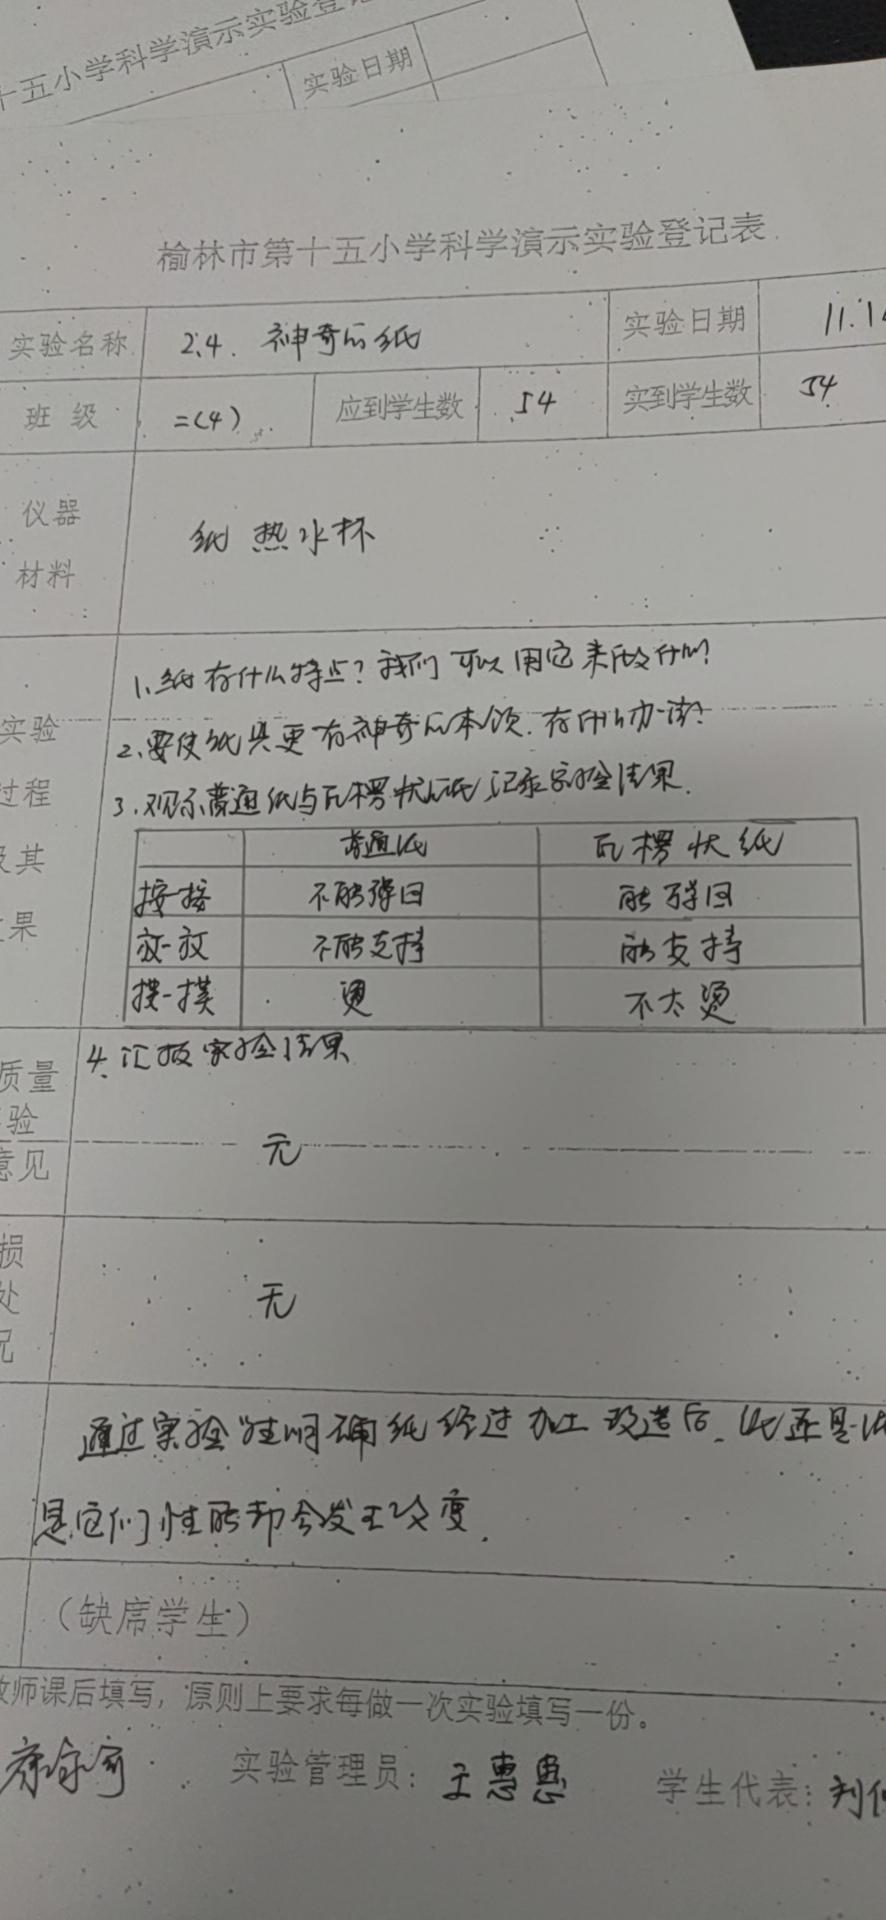 十五小学科学演示实验登记
实验日期
榆林市第十五小学科学演示实验登记表
实验名称 2.4. 神奇的纸 实验日期 11.1
班 级 二(4) 应到学生数 54 实到学生数 54
仪器
材料
纸 热水杯
实验
过程
及其
果
1、纸有什么特点？我们可以用它来做什么？
2、要使纸具更有神奇的本领.有什么办法？
3、观示普通纸与瓦楞状的纸,记录实验结果.
普通纸 瓦楞状纸
按一按 不能弹回 能弹回
放一放 不能支持 能支持
摸一摸 烫 不太烫
4、汇报实验结果
质量
验
意见
无
损
处
况
无
通过实验学生明确纸经过加工改造后.纸还是纸
是它们性能却会发生改变.
（缺席学生）
教师课后填写，原则上要求每做一次实验填写一份。
实验管理员： 王惠惠 学生代表：刘